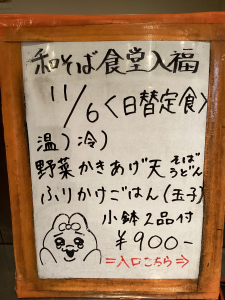 和そば食堂入福
11/6<日替定食>
温)冷)
野菜かきあげ天 そば うどん
ふりかけごはん(玉子)
小鉢2品付
¥900-
=入口こちら⇒